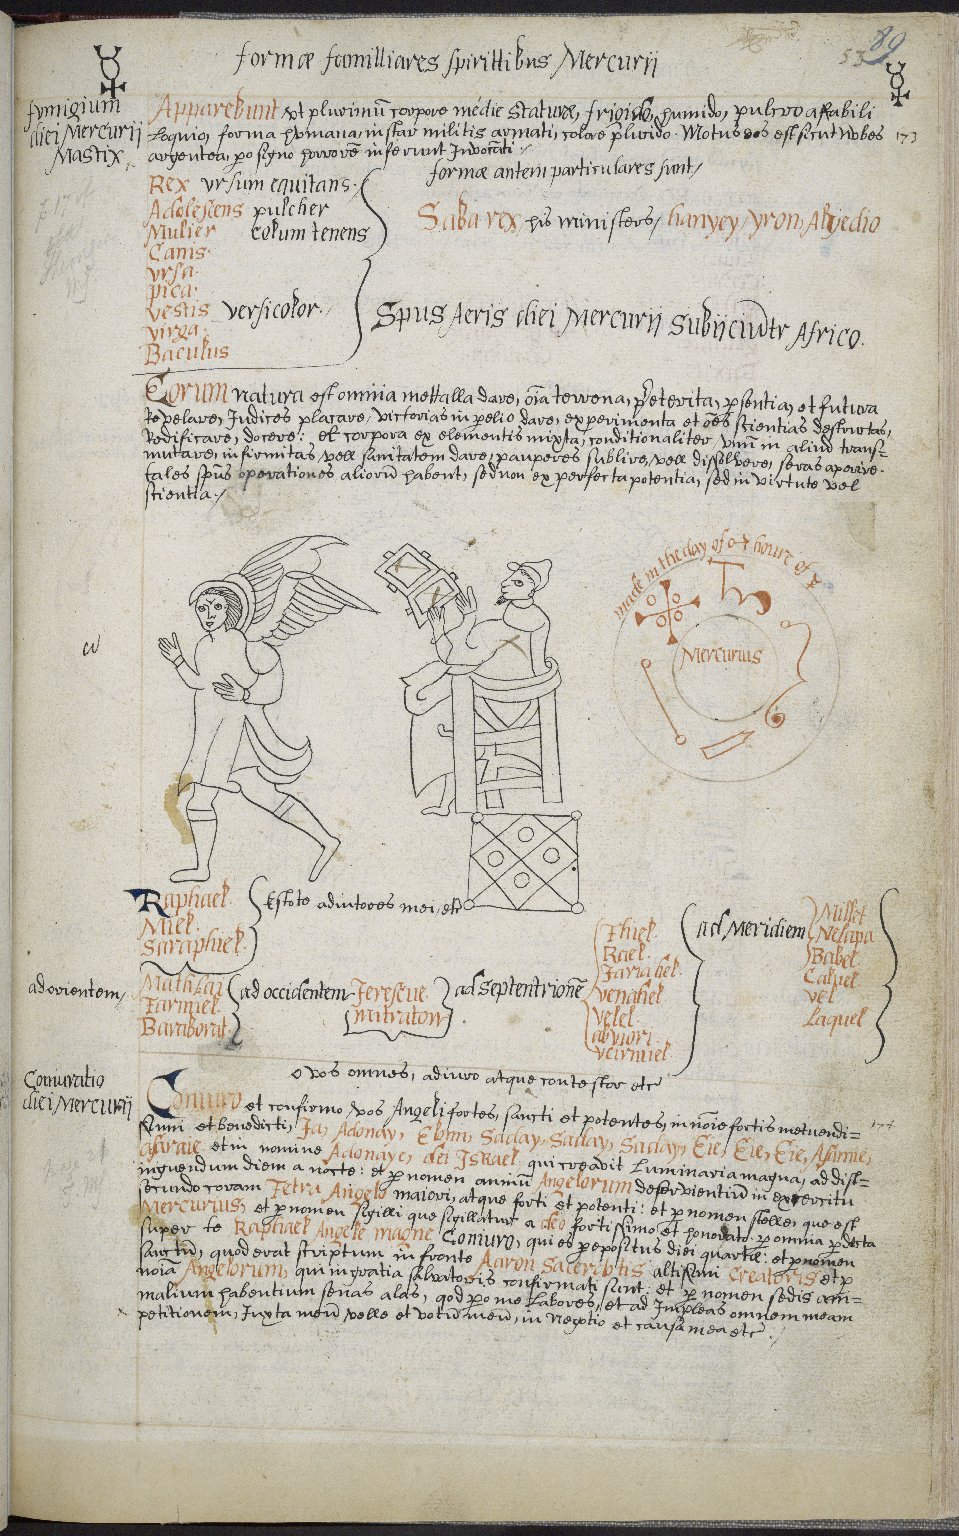 formæ familliares spirittibus Mercurij
53 89
fumigium
diei Mercurij
Mastix
Apparebunt ut plurimū corpore medie staturæ, frigido, humido, pulcro affabili
Loquio, forma humana, instar militis armati, colore plurido. Motus eos est sicut Nubes
argentea, pro signo horrorē inferunt Invocāti
173
formæ autem particulares sunt
Rex ursum equitans
Adolescens pulcher
Mulier colum tenens
Canis
Ursa
Pica
Vestis versicolor
Virga
Baculus
Saba rex, his ministers, hanyey, yron, Alvedio
Spus Aeris diei Mercurij Subijciūtr Africo.
Eorum natura est omnia mettalla dare, oīa terrena, preterita, presentia, et futura
Revelare, Judices placare, victorias in prelio dare, experimenta et oēs scientias destructas,
Redificare, docere: et corpora ex elementis mixta, conditionaliter unū in aliud trans=
mutare, infirmitas vell sanitatem dare, pauperes sublire, vell dissolvere, seras aperire.
tales spūs operationes aliorū habent, sed non ex perfecta potentia, sed in virtute vel
scientia
made in the day of houre of ☿
Mercurius
Raphael
Miel
Saraphiel
Estote adiutores mei, etc
ad orientem
Mathlai
Tarmiel
Baraborat
ad occidentem
Jerescue
mitraton
ad septentrionē
Thiel
Rael
Jariahel
venahel
velel
abviori
veirmiel
ad Meridiem
Millet
Nelapa
Babel
Caluel
vel
Laquel
O vos omnes, adiuro atque contestor etc
Coniuratio
diei Mercurij
Coniuro et confirmo vos Angeli fortes, sancti et potentes, in nōie fortis metuendi=
ssimi et benedicti, Ja, Adonay, Eloim, Saday, Saday, Saday, Eie, Eie, Eie, Asamie,
174
Asaraie et in nomine Adonaye, dei Israel, qui creavit Luminaria magna, ad dist=
inguendum diem a nocte: et per nomen omniū Angelorum deservientiū in exercitu
secundo coram Tetra Angelo maiori, atque forti et potenti: et per nomen stelle, que est
Mercurius, et per nomen sigilli que sigillatur a deo fortissimo et honorato: per omnia predicta
super te Raphael Angele magne Coniuro, qui es prepositus diei quartæ: et per nomen
sanctū, quod erat scriptum in fronte Aaron Sacerdotis altissimi creatoris et per
noīa Angelorum, qui in gratia salvatoris confirmati sunt: et per nomen sedis ani=
malium habentium senas alas, qod pro me labores, et ad Impleas omnem meam
petitionem, Iuxta meū velle et votū meū, in Negotio et causa mea etc